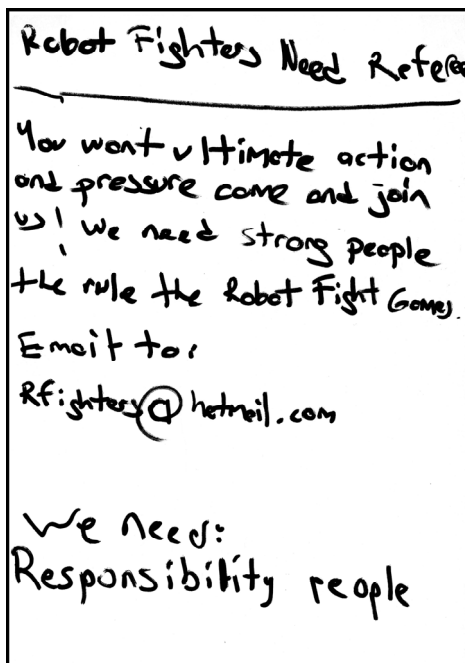 Robot Fighters Need Referee
You want ultimate action
and pressure come and join
us! We need strong people
the rule the Robot Fight Games.
Email to:
Rfighters@hotmail.com
We need:
Responsibility people